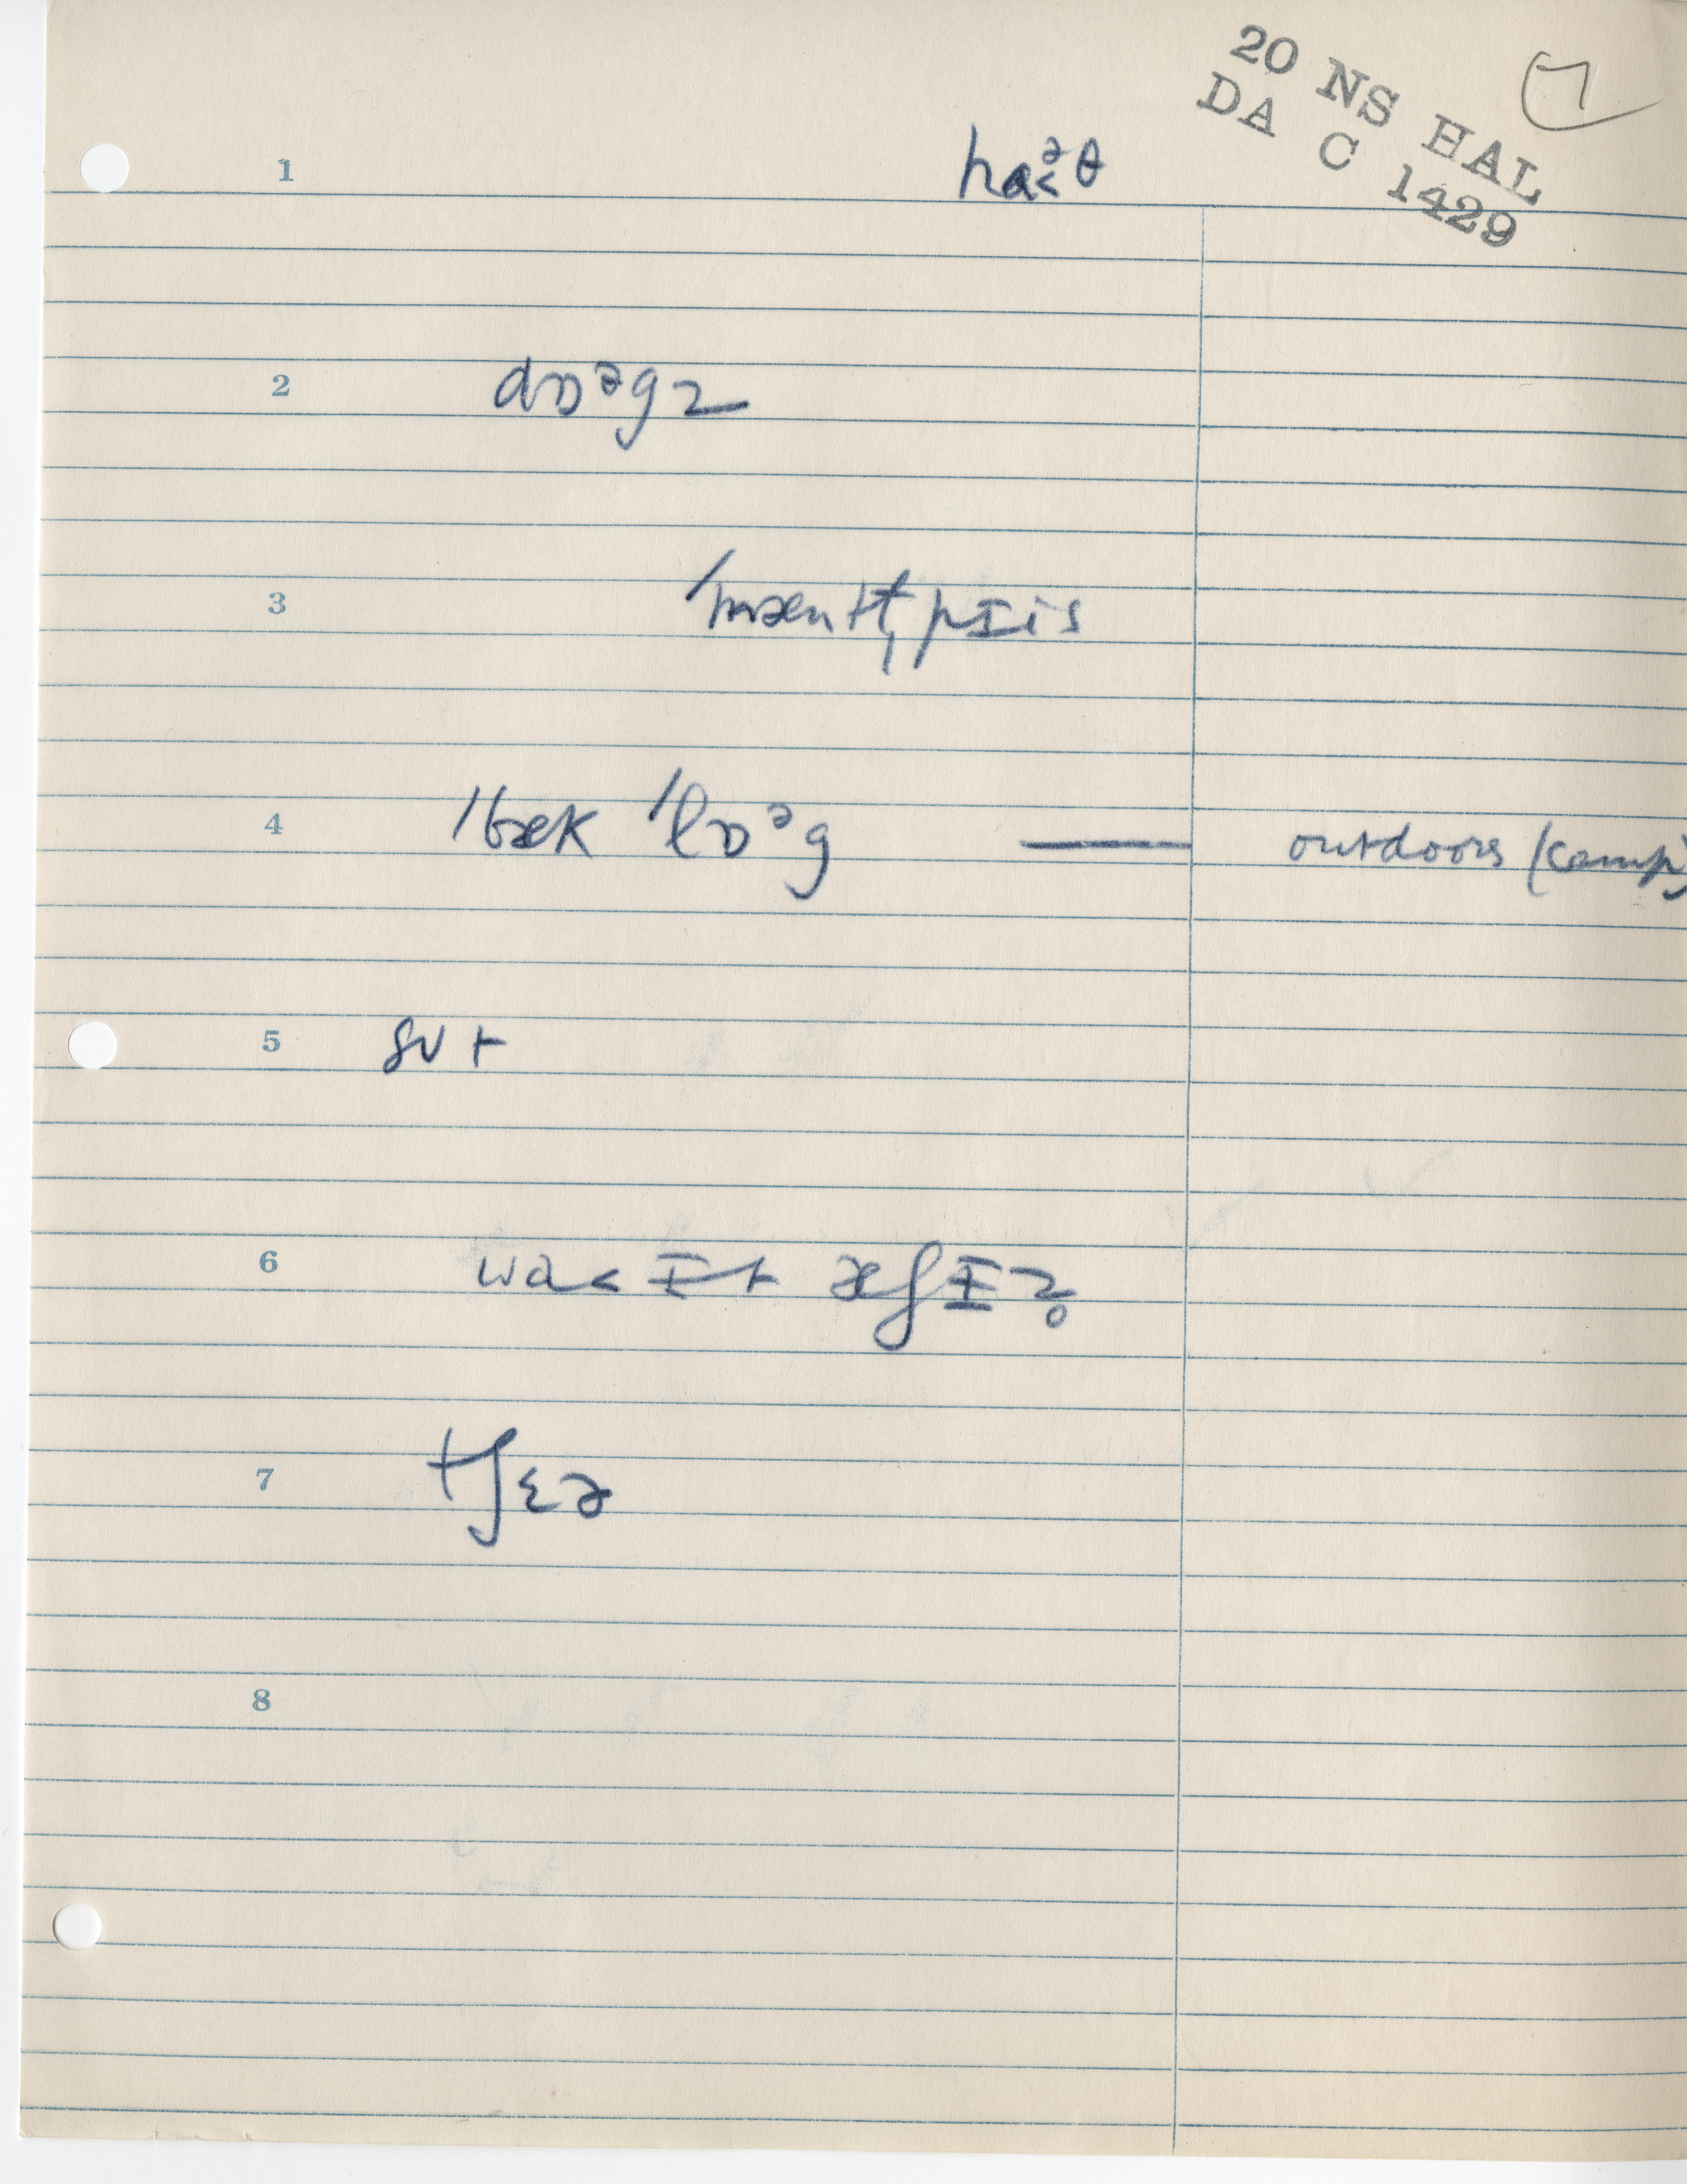 20 NS HAL
DA C 1429
7
1 ha˂ᵊθ
2 dɒᵊgz
3 ˈmæntḷpɪis
4 ˈbæk ˈlɒᵊg — outdoors (camp)
5 sʊt
6 wa˂ɪt æʃɪz̥
7 tʃɛə
8